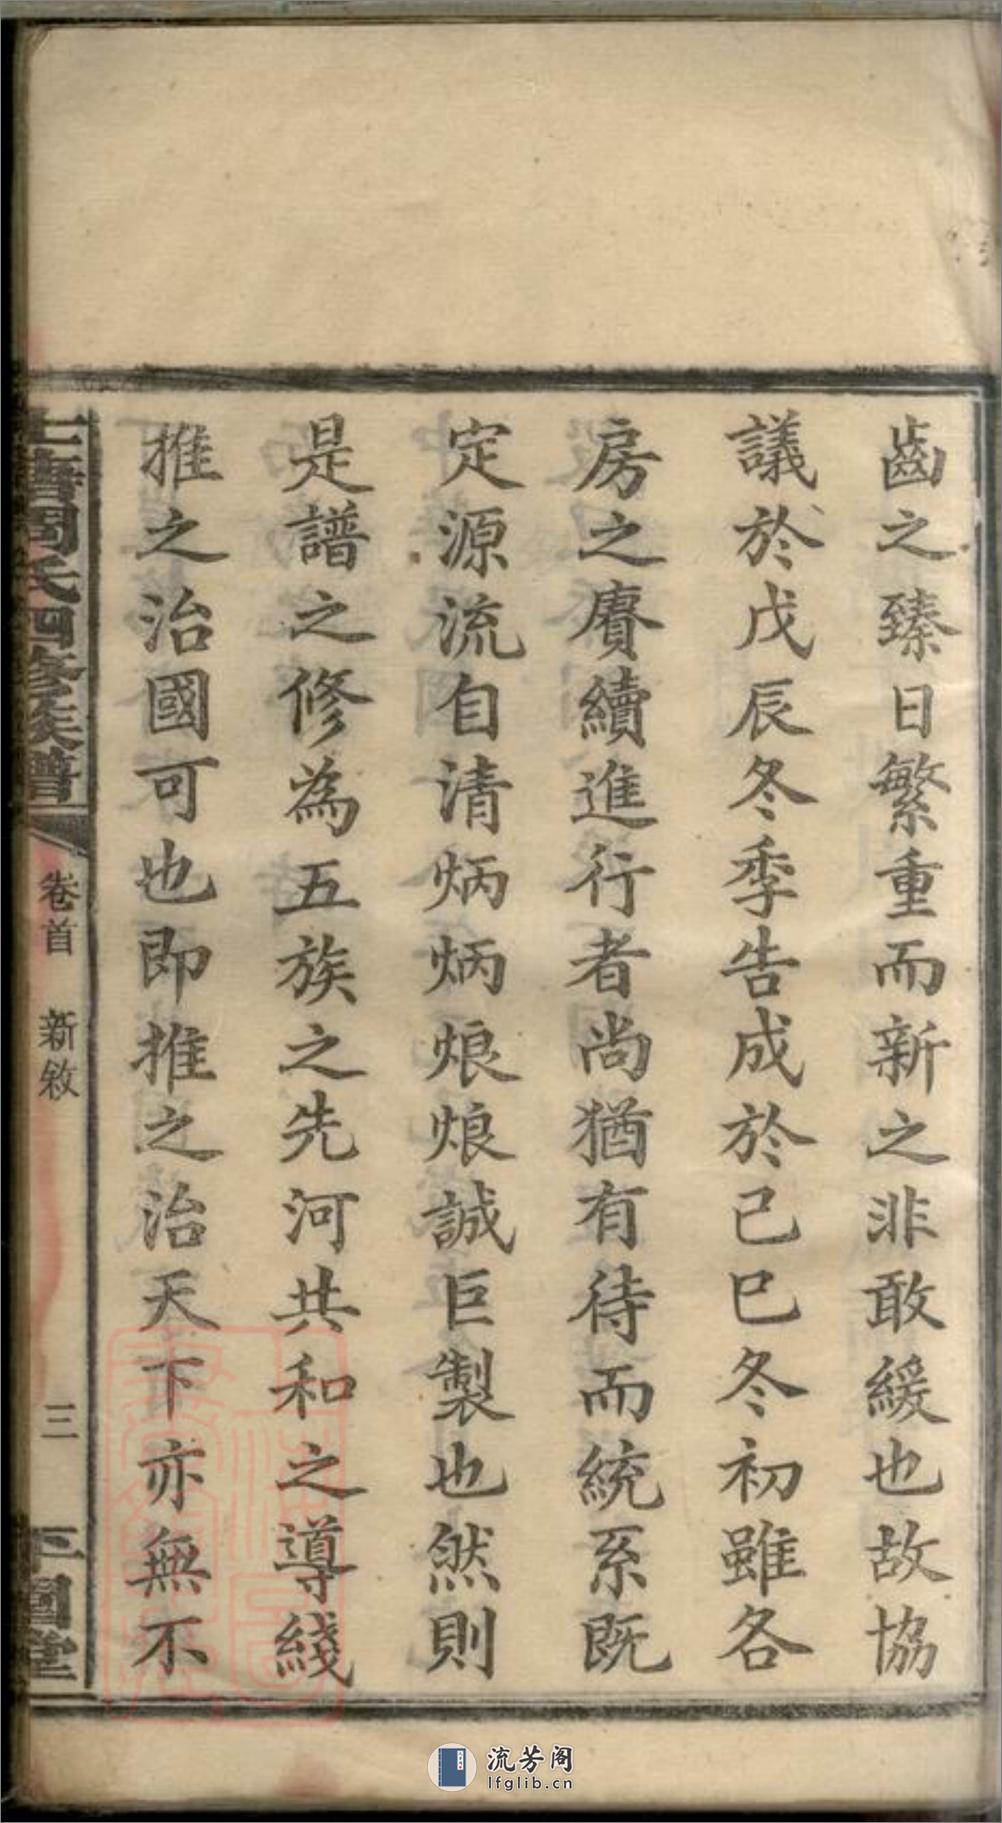 齒之臻日繁重而新之非敢緩也故協
議於戊辰冬季告成於己巳冬初雖各
房之賡續進行者尚猶有待而統系既
定源流自清炳炳烺烺誠巨製也然則
是譜之修為五族之先河共和之導綫
推之治國可也即推之治天下亦無不
周氏四修族譜
卷首 新敘
三
堂
流芳阁
lfglib.cn